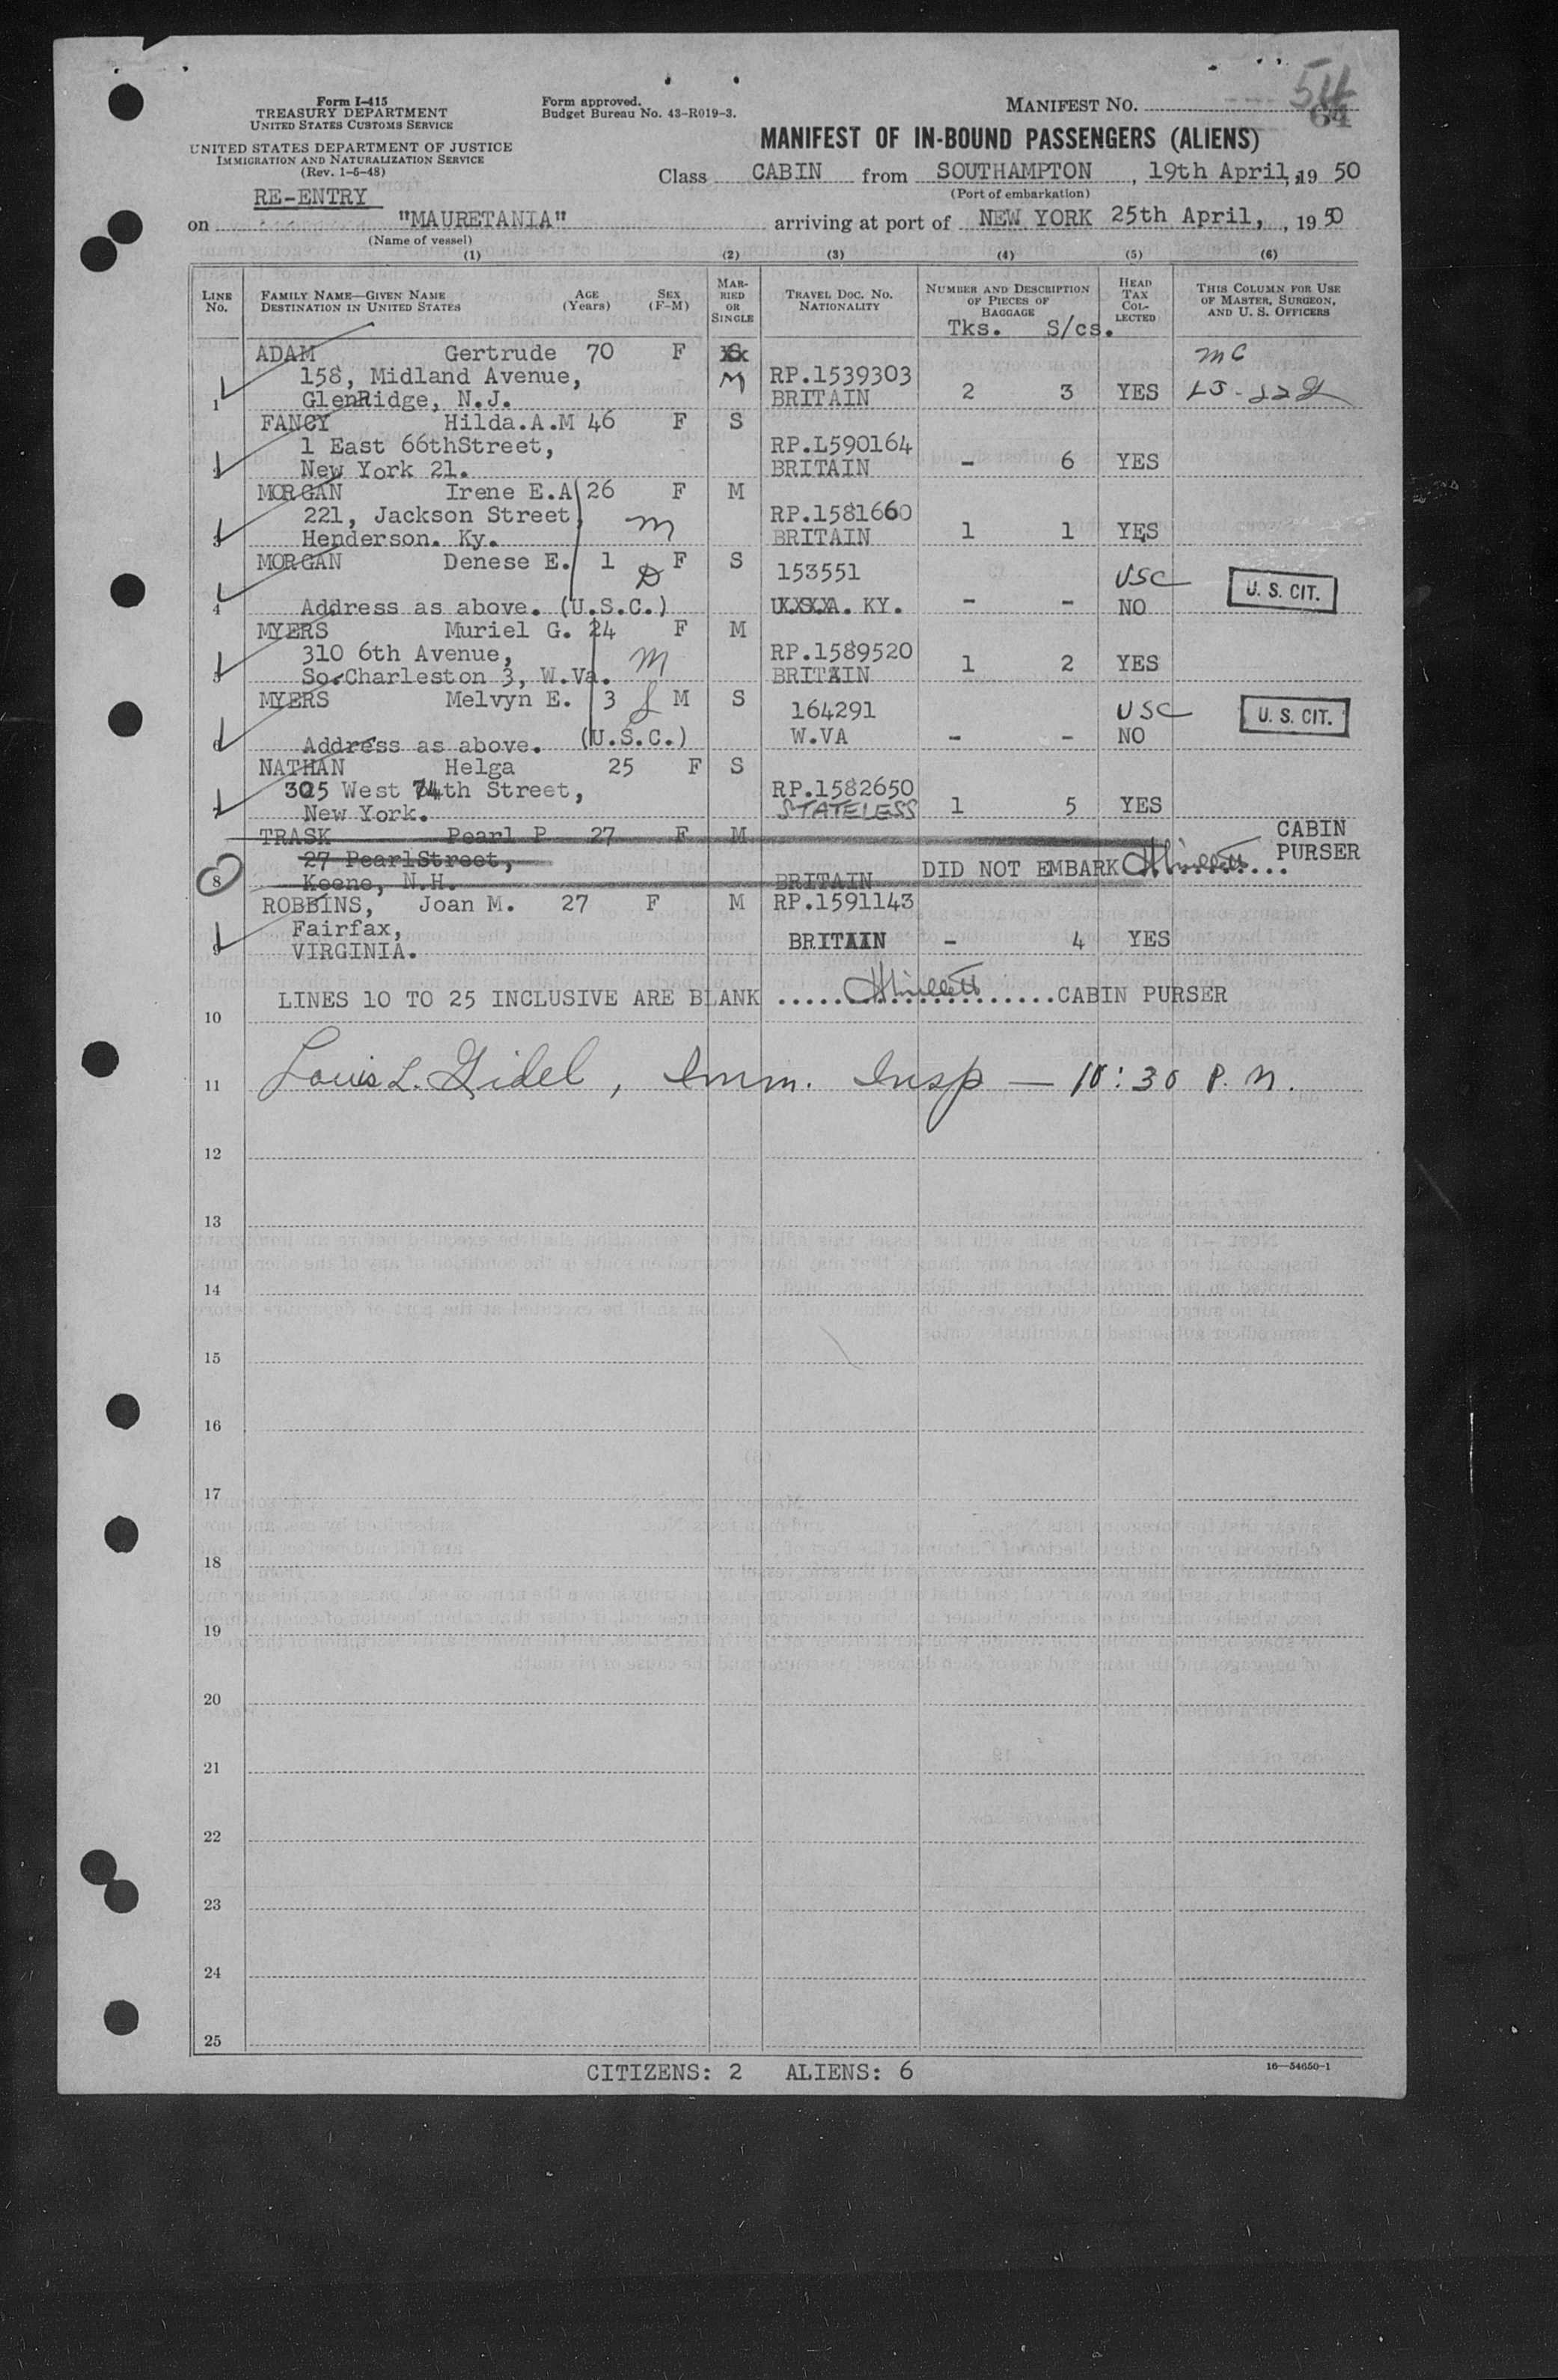 Form I-415
TREASURY DEPARTMENT
UNITED STATES CUSTOMS SERVICE
UNITED STATES DEPARTMENT OF JUSTICE
IMMIGRATION AND NATURALIZATION SERVICE
(Rev. 1-5-48)
Form approved.
Budget Bureau No. 43-R019-3.
MANIFEST NO. 54
64
MANIFEST OF IN-BOUND PASSENGERS (ALIENS)
Class CABIN from SOUTHAMPTON, 19th April, 19 50
(Port of embarkation)
RE-ENTRY
on "MAURETANIA" arriving at port of NEW YORK 25th April, , 19 50
(Name of vessel)
(1) (2) (3) (4) (5) (6)
LINE No. FAMILY NAME—GIVEN NAME DESTINATION IN UNITED STATES AGE (Years) SEX (F-M) MARRIED OR SINGLE TRAVEL DOC. NO. NATIONALITY NUMBER AND DESCRIPTION OF PIECES OF BAGGAGE HEAD TAX COLLECTED THIS COLUMN FOR USE OF MASTER, SURGEON, AND U. S. OFFICERS
Tks. S/cs.
ADAM Gertrude 70 F M mc
158, Midland Avenue, RP.1539303
1 GlenRidge, N.J. BRITAIN 2 3 YES
FANCY Hilda.A.M 46 F S
1 East 66thStreet, RP.L590164
New York 21. BRITAIN - 6 YES
MORGAN Irene E.A 26 F M
221, Jackson Street, m RP.1581660
3 Henderson. Ky. BRITAIN 1 1 YES
MORGAN Denese E. 1 D F S 153551 USC U. S. CIT.
4 Address as above. (U.S.C.) KY. - - NO
MYERS Muriel G. 24 F M
310 6th Avenue, m RP.1589520
5 So.Charleston 3, W.Va. BRITAIN 1 2 YES
MYERS Melvyn E. 3 M S 164291 USC U. S. CIT.
6 Address as above. (U.S.C.) W.VA - - NO
NATHAN Helga 25 F S
305 West 74th Street, RP.1582650
New York. STATELESS 1 5 YES
TRASK Pearl P 27 F M CABIN
27 PearlStreet, DID NOT EMBARK PURSER
8 Keene, N.H. BRITAIN
ROBBINS, Joan M. 27 F M RP.1591143
Fairfax,
9 VIRGINIA. BRITAIN - 4 YES
LINES 10 TO 25 INCLUSIVE ARE BLANK CABIN PURSER
10
11 Louis L. Gidel, Imm. Insp — 10:30 P.M.
12
13
14
15
16
17
18
19
20
21
22
23
24
25
CITIZENS: 2 ALIENS: 6
16—54650-1